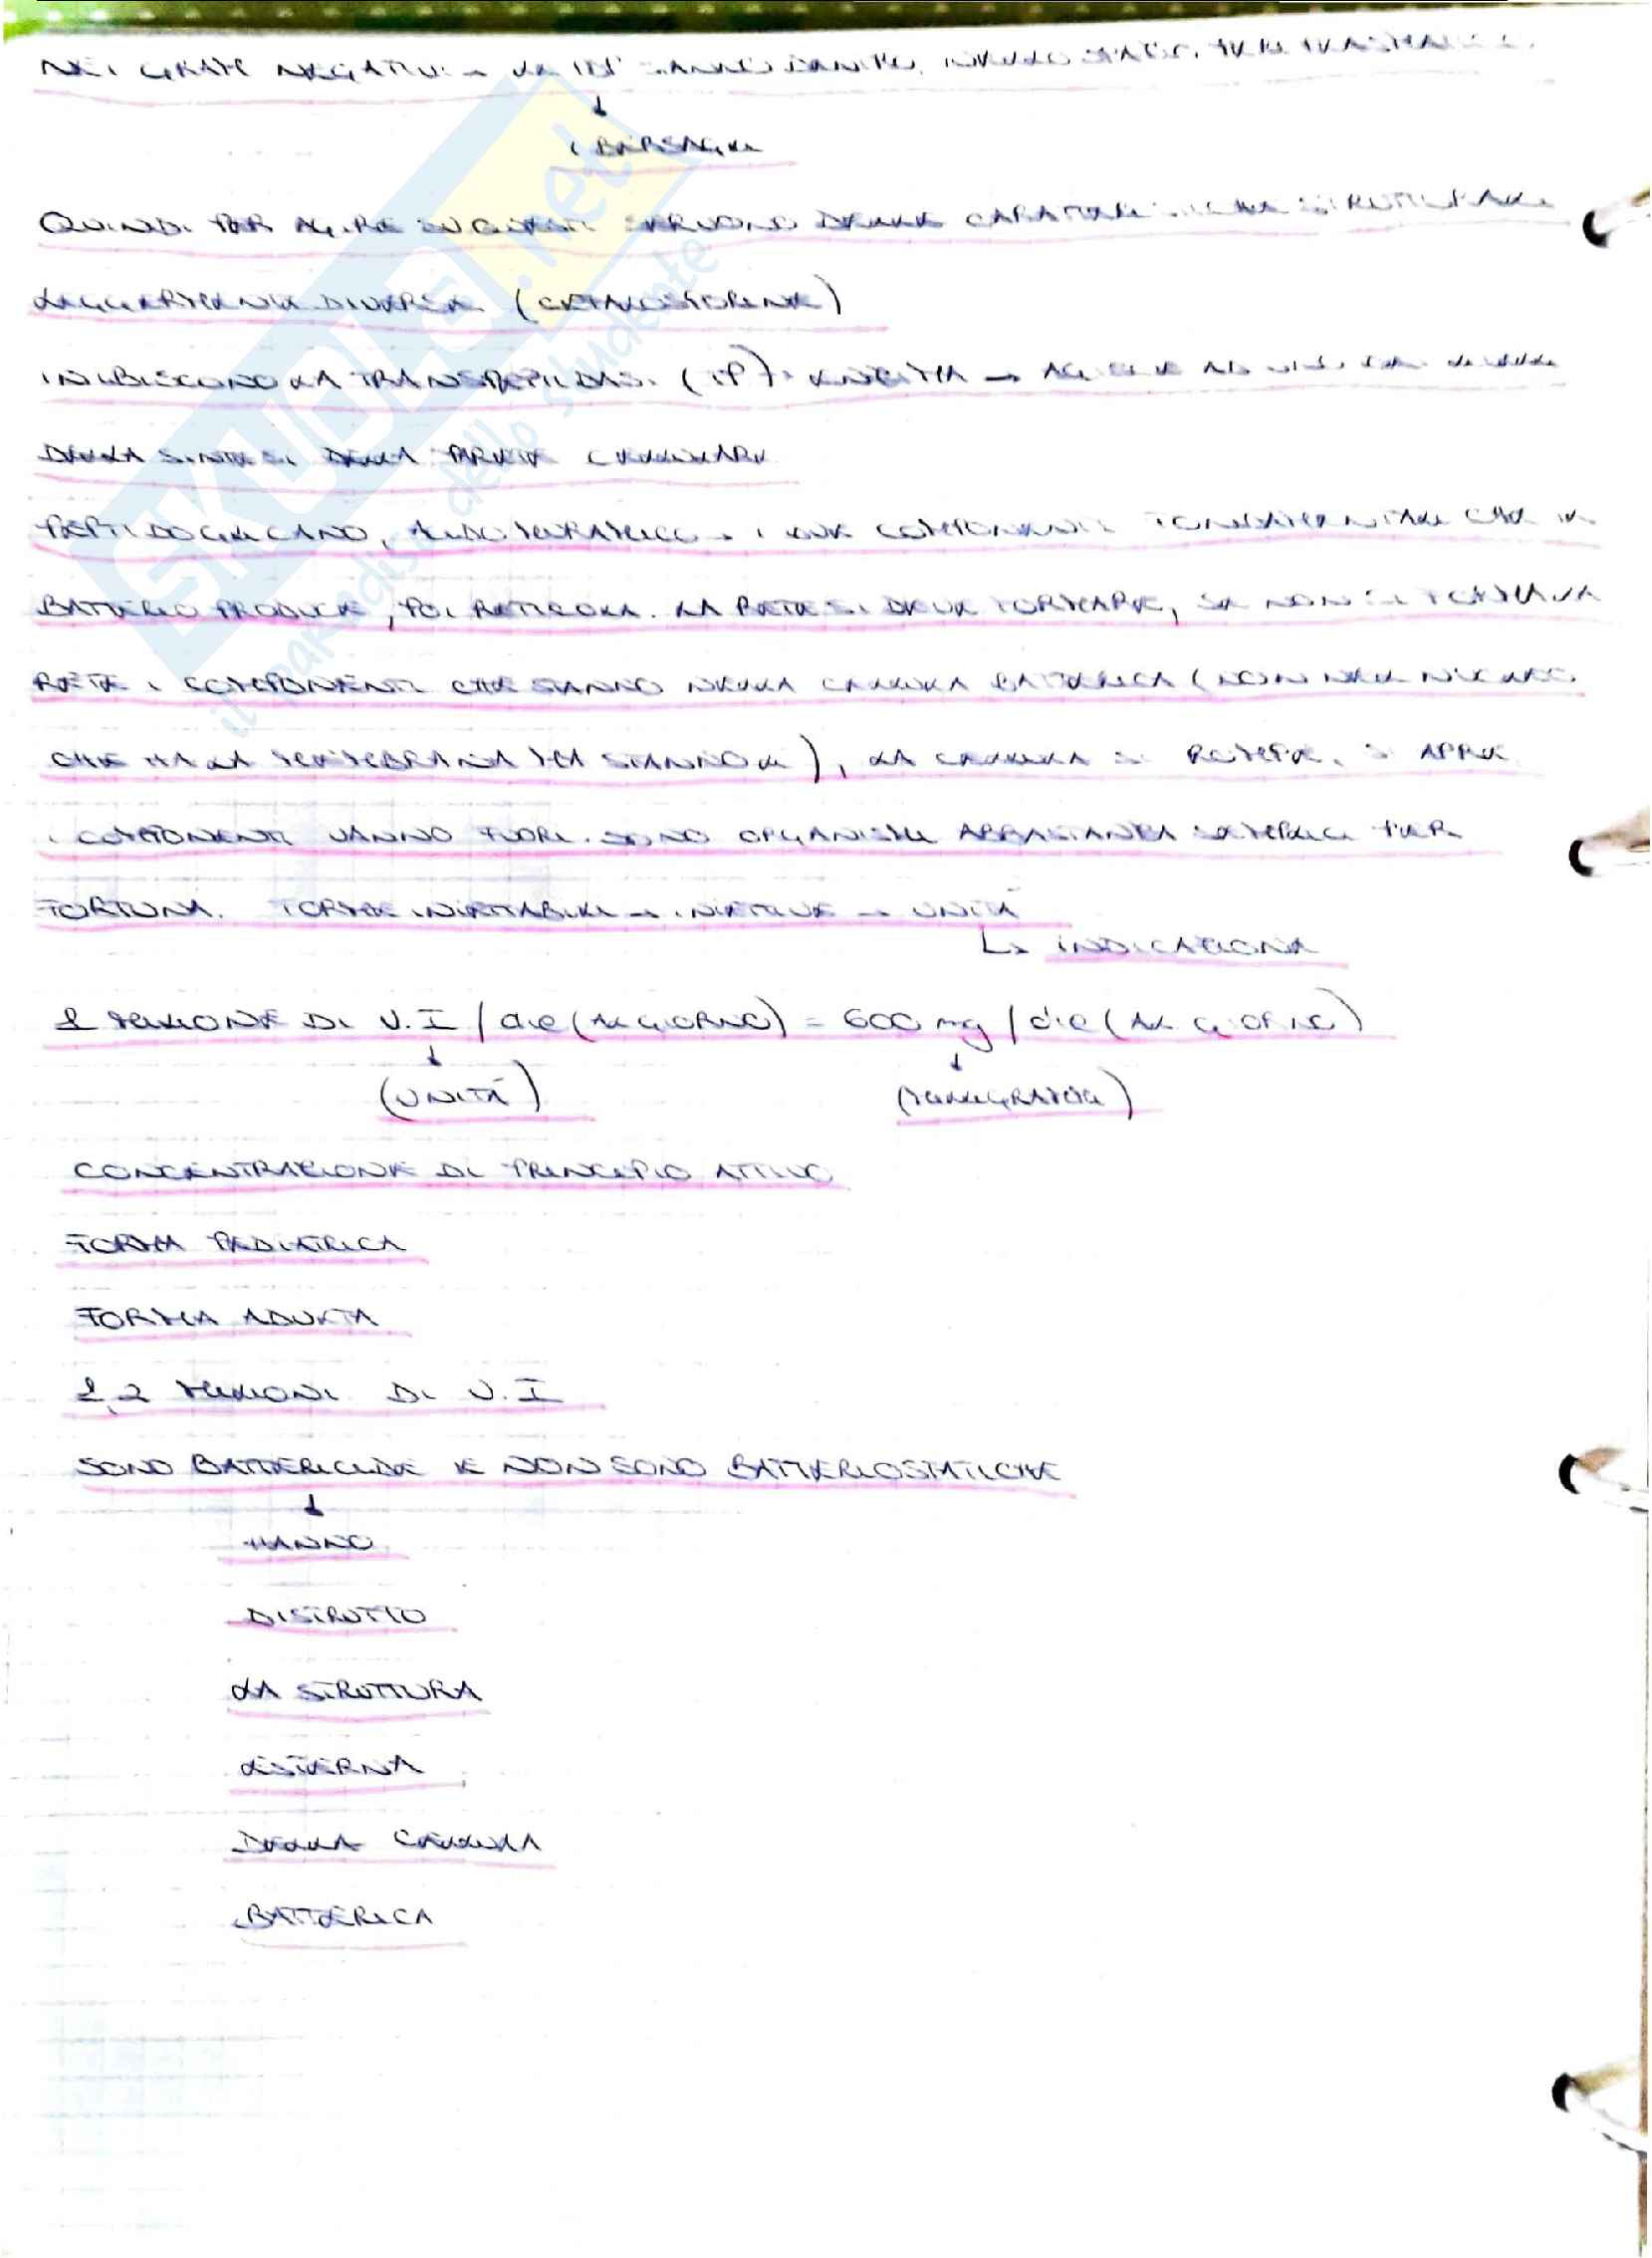 NEI GRAM NEGATIVI → LE PBP STANNO
↓
I BERSAGLI
QUINDI PER AGIRE SU QUESTI SERVONO DELLE CARATTERISTICHE STRUTTURALI
LEGGERMENTE DIVERSE (CEFALOSPORINE)
INIBISCONO LA TRANSPEPTIDASI (TP): ENZIMA → AGISCE
DELLA SINTESI DELLA PARETE CELLULARE
PEPTIDOGLICANO, ACIDO MURAMICO → I DUE COMPONENTI FONDAMENTALI CHE IL
BATTERIO PRODUCE, POI RETICOLA. LA RETE SI DEVE FORMARE, SE NON SI FORMA LA
RETE I COMPONENTI CHE STANNO NELLA CELLULA BATTERICA (NON NEL NUCLEO
CHE HA LA MEMBRANA MA STANNO LÌ), LA CELLULA SI ROMPE, SI APRE
I COMPONENTI VANNO FUORI. SONO ORGANISMI ABBASTANZA SEMPLICI PER
FORTUNA. FORME INIETTABILI → INIETTIVE → UNITÀ
↳ INDICAZIONE
1 MILIONE DI U.I / die (AL GIORNO) = 600 mg / die (AL GIORNO)
↓ ↓
(UNITÀ) (MILLIGRAMMI)
CONCENTRAZIONE DI PRINCIPIO ATTIVO
FORMA PEDIATRICA
FORMA ADULTA
1,2 MILIONI DI U.I
SONO BATTERICIDE E NON SONO BATTERIOSTATICHE
↓
HANNO
DISTRUTTO
LA STRUTTURA
ESTERNA
DELLA CELLULA
BATTERICA
SKUOLA.net
il paradiso dello studente